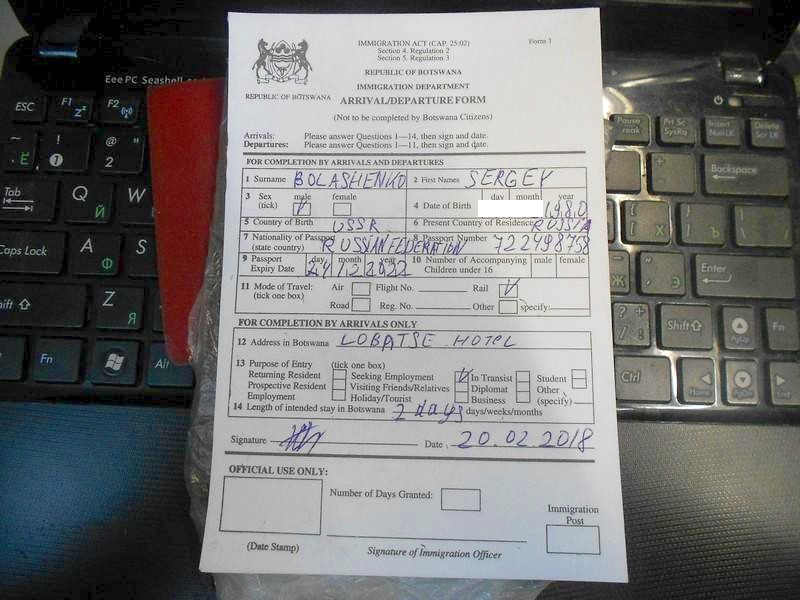 IMMIGRATION ACT (CAP. 25:02)
Section 4. Regulation 2
Section 5. Regulation 3
Form 1
REPUBLIC OF BOTSWANA
REPUBLIC OF BOTSWANA
IMMIGRATION DEPARTMENT
ARRIVAL/DEPARTURE FORM
(Not to be completed by Botswana Citizens)
Arrivals: Please answer Questions 1—14, then sign and date.
Departures: Please answer Questions 1—11, then sign and date.
FOR COMPLETION BY ARRIVALS AND DEPARTURES
1 Surname BOLASHENKO 2 First Names SERGEY
3 Sex (tick) male female 4 Date of Birth day month year 1980
5 Country of Birth USSR 6 Present Country of Residence RUSSIA
7 Nationality of Passport (state country) RUSSIAN FEDERATION 8 Passport Number 722498758
9 Passport Expiry Date day month year 24 12 2022 10 Number of Accompanying Children under 16 male female
11 Mode of Travel: (tick one box) Air Flight No. Rail
Road Reg. No. Other specify:
FOR COMPLETION BY ARRIVALS ONLY
12 Address in Botswana LOBATSE HOTEL
13 Purpose of Entry (tick one box)
Returning Resident Seeking Employment In Transist Student
Prospective Resident Visiting Friends/Relatives Diplomat Other
Employment Holiday/Tourist Business (specify)
14 Length of intended stay in Botswana 2 days days/weeks/months
Signature Date 20.02.2018
OFFICIAL USE ONLY:
Number of Days Granted:
Immigration Post
(Date Stamp) Signature of Immigration Officer
Eee PC Seashell
ESC F1 F2
Tab Q
Caps Lock A Ф
Shift Z Я
Fn Alt
Pause Break Prt Sc SysRq Insert Num LK Delete Scr LK
Backspace
Enter
Shift PgUp
Ctrl Home PgDn